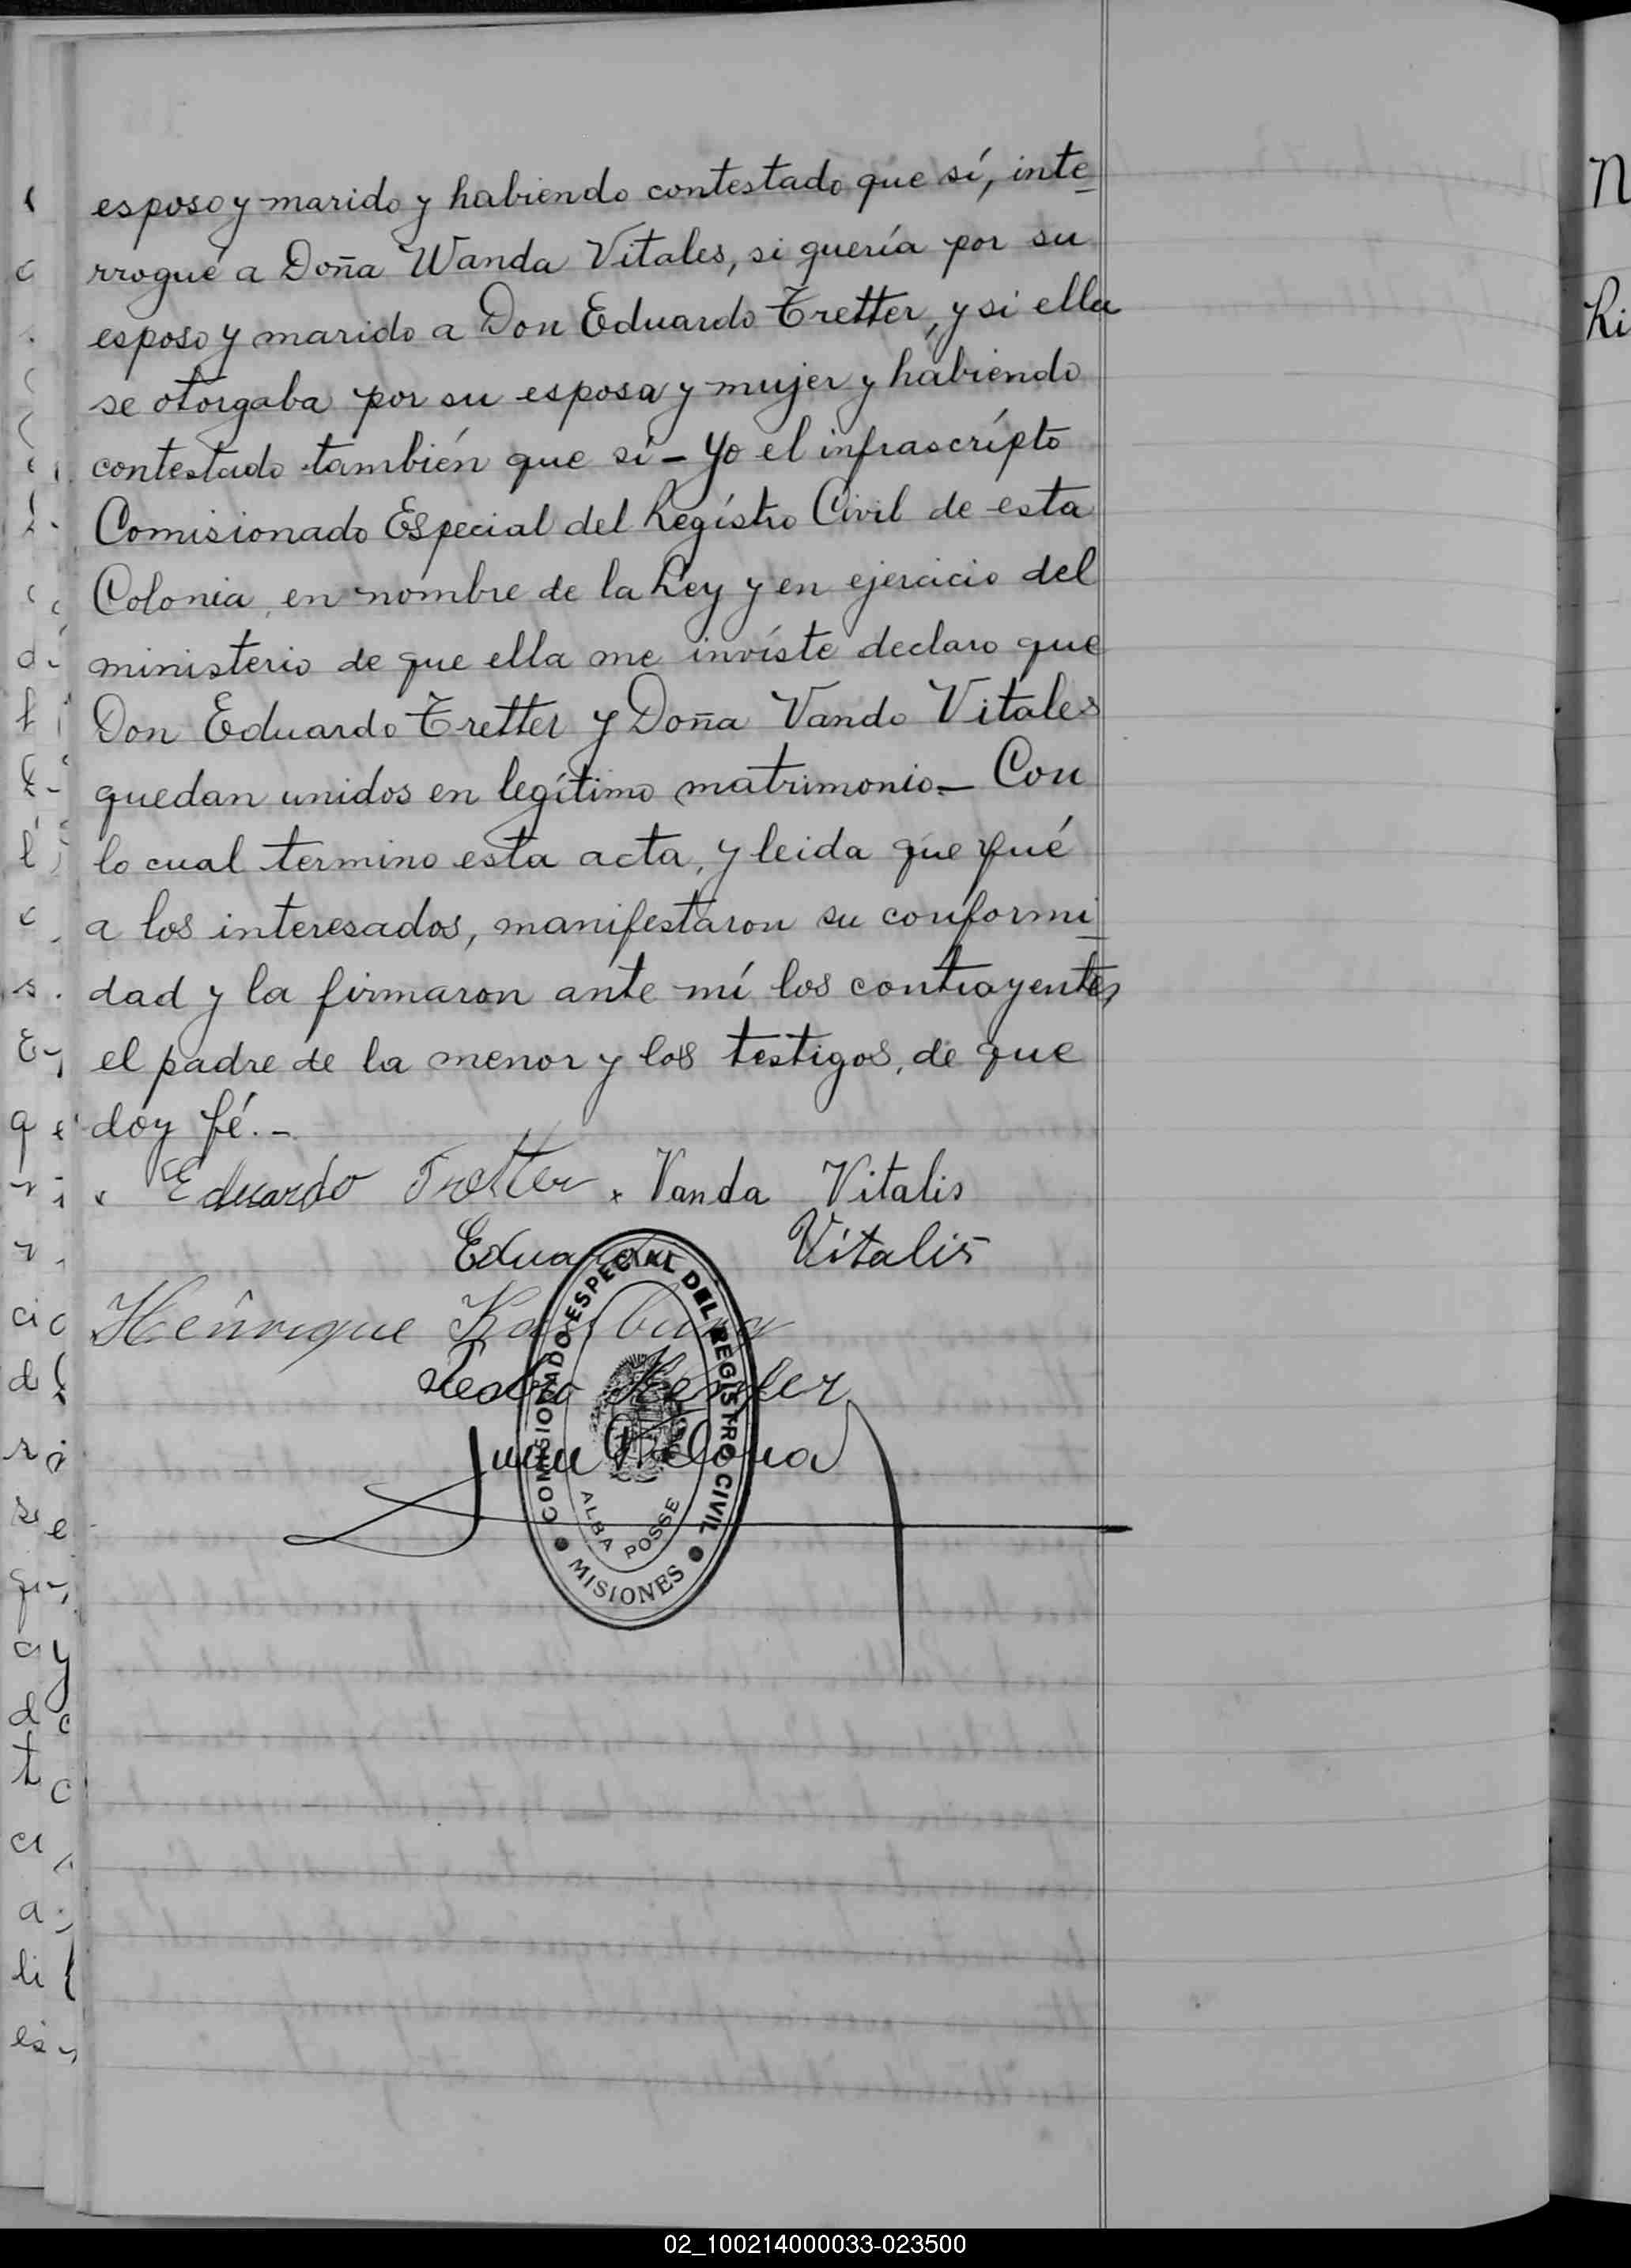 esposo y marido y habiendo contestado que sí, inte-
rrogué a Doña Wanda Vitales, si quería por su
esposo y marido a Don Eduardo Tretter, y si ella
se otorgaba por su esposa y mujer y habiendo
contestado también que si - Yo el infrascrípto
Comisionado Especial del Regístro Civil de esta
Colonia, en nombre de la Ley y en ejercicio del
ministerio de que ella me invíste declaro que
Don Eduardo Tretter y Doña Vando Vitales
quedan unidos en legítimo matrimonio. - Con
lo cual termino esta acta, y leida que fué
a los interesados, manifestaron su conformi-
dad y la firmaron ante mí los contrayentes,
el padre de la menor y los testigos, de que
doy fé. -
x Eduardo Tretter x Vanda Vitalis
Eduardo Vitalis
Henrique
Pedro
Juan
COMISIONADO ESPECIAL DEL REGISTRO CIVIL
ALBA POSSE
MISIONES
N
Li
02_100214000033-023500